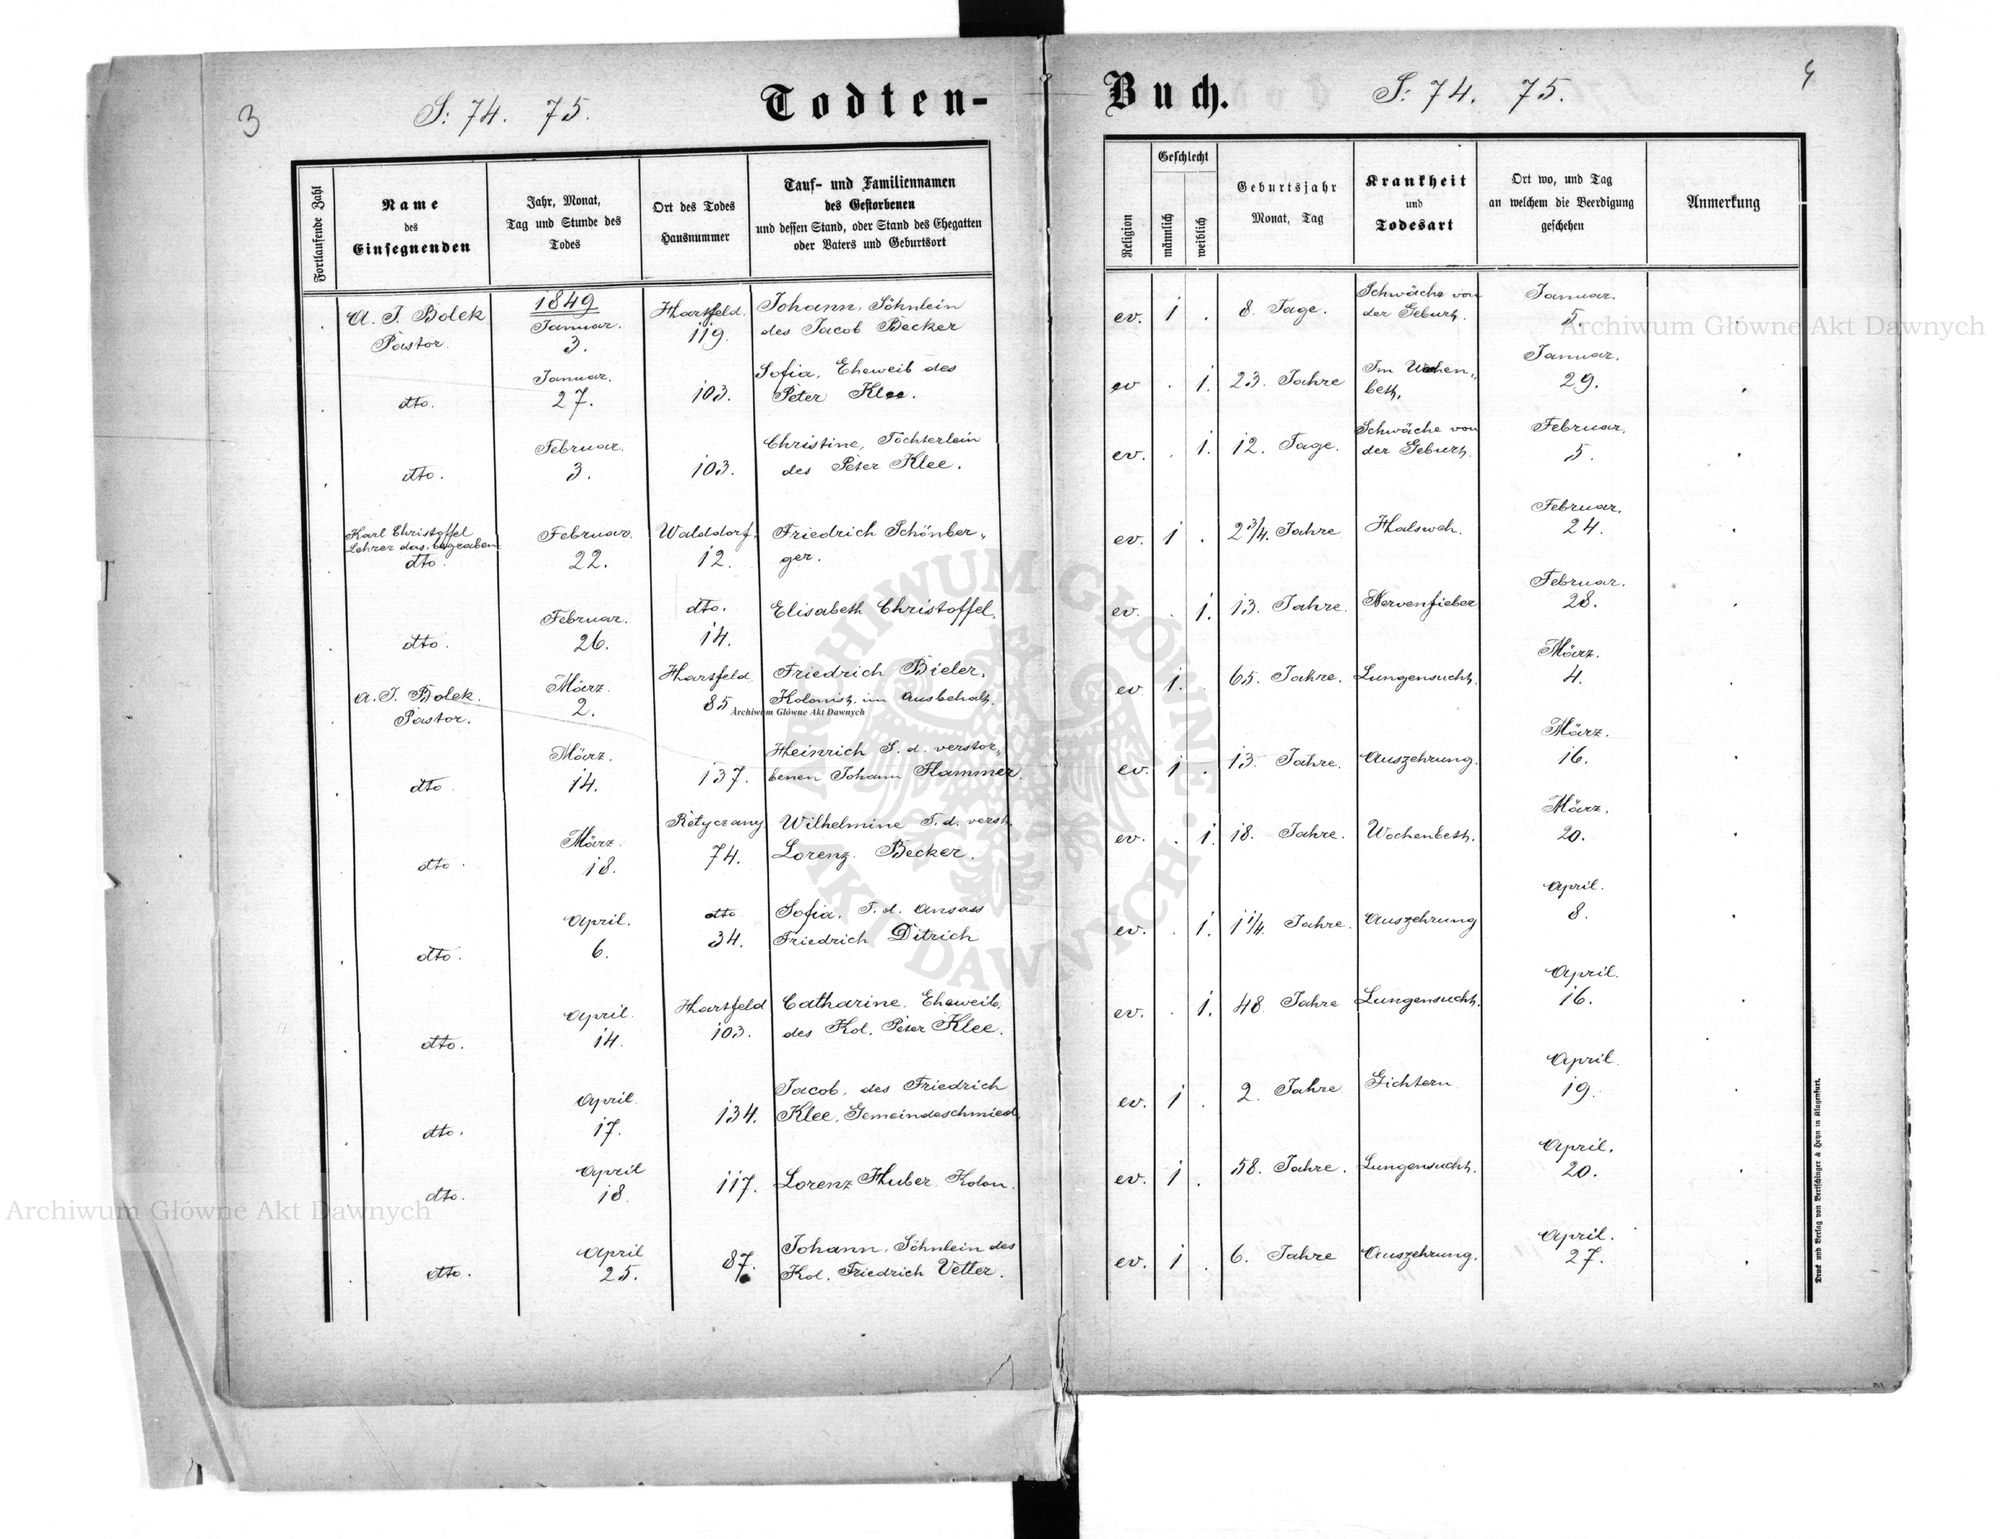 3
S: 74. 75.
Todten-
Buch.
S: 74. 75.
4
Fortlaufende Zahl
Name
des
Einsegnenden
Jahr, Monat,
Tag und Stunde des
Todes
Ort des Todes
Hausnummer
Tauf- und Familiennamen
des Gestorbenen
und dessen Stand, oder Stand des Ehegatten
oder Vaters und Geburtsort
Religion
Geschlecht
männlich
weiblich
Geburtsjahr
Monat, Tag
Krankheit
und
Todesart
Ort wo, und Tag
an welchem die Beerdigung
geschehen
Anmerkung
A. J. Bolek
Pastor.
1849
Januar.
3.
Hartfeld.
119.
Johann, Söhnlein
des Jacob Becker
ev. 1 .
8. Tage.
Schwäche von
der Geburt.
Januar.
5.
dto.
Januar.
27.
103.
Sofia, Eheweib des
Peter Klee.
ev . 1.
23. Jahre
Im Wochen„
bett.
Januar.
29.
dto.
Februar.
3.
103.
Christine, Töchterlein
des Peter Klee.
ev. . 1.
12. Tage.
Schwäche von
der Geburt.
Februar.
5.
Karl Christoffel
Lehrer das. begraben
dto.
Februar.
22.
Walddorf.
12.
Friedrich Schönber„
ger.
ev. 1 .
2 3/4. Jahre
Halsweh.
Februar.
24.
dto.
Februar.
26.
dto.
14.
Elisabeth Christoffel.
ev. . 1.
13. Jahre.
Nervenfieber
Februar.
28.
A. J. Bolek.
Pastor.
März.
2.
Hartfeld
85
Friedrich Bieler,
Kolonist. im Ausbehalt.
ev. 1. .
65. Jahre.
Lungensucht.
März.
4.
dto.
März.
14.
137.
Heinrich S. d. verstor„
benen Johann Hammer.
ev. 1 .
13. Jahre.
Auszehrung.
März.
16.
dto.
März.
18.
Retyczany
74.
Wilhelmine T. d. verst.
Lorenz Becker.
ev. . 1.
18. Jahre.
Wochenbett.
März.
20.
dto.
April.
6.
dto.
34.
Sofia, T. d. Ansass
Friedrich Ditrich
ev. . 1.
1 1/4. Jahre.
Auszehrung
April.
8.
dto.
April.
14.
Hartfeld
103.
Catharine, Eheweib
des Kol. Peter Klee.
ev. . 1.
48. Jahre
Lungensucht.
April.
16.
dto.
April.
17.
134.
Jacob, des Friedrich
Klee, Gemeindeschmied.
ev. 1 .
2. Jahre
Gichtern
April.
19.
dto.
April
18.
117.
Lorenz Huber Kolon.
ev. 1 .
58. Jahre.
Lungensucht.
April.
20.
dto.
April
25.
87.
Johann, Söhnlein des
Kol. Friedrich Vetter.
ev. 1 .
6. Jahre
Auszehrung.
April.
27.
Druck und Verlag von Bertschinger & Heyn in Klagenfurt.
Archiwum Główne Akt Dawnych
Archiwum Główne Akt Dawnych
Archiwum Główne Akt Dawnych
ARCHIWUM GŁÓWNE AKT DAWNYCH